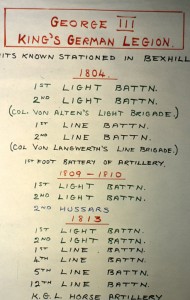 GEORGE III
KING'S GERMAN LEGION.
ITS KNOWN STATIONED IN BEXHILL
1804.
1ST LIGHT BATTN.
2ND LIGHT BATTN.
(COL. VON ALTEN'S LIGHT BRIGADE.)
1ST LINE BATTN.
2ND LINE BATTN.
(COL VON LANGWERTH'S LINE BRIGADE.)
1ST FOOT BATTERY OF ARTILLERY.
1809 - 1810
1ST LIGHT BATTN.
2ND LIGHT BATTN.
2ND HUSSARS
1813
1ST LIGHT BATTN.
2ND LIGHT BATTN.
1ST LINE BATTN.
4TH LINE BATTN.
5TH LINE BATTN.
12TH LINE BATTN.
K.G.L. HORSE ARTILLERY